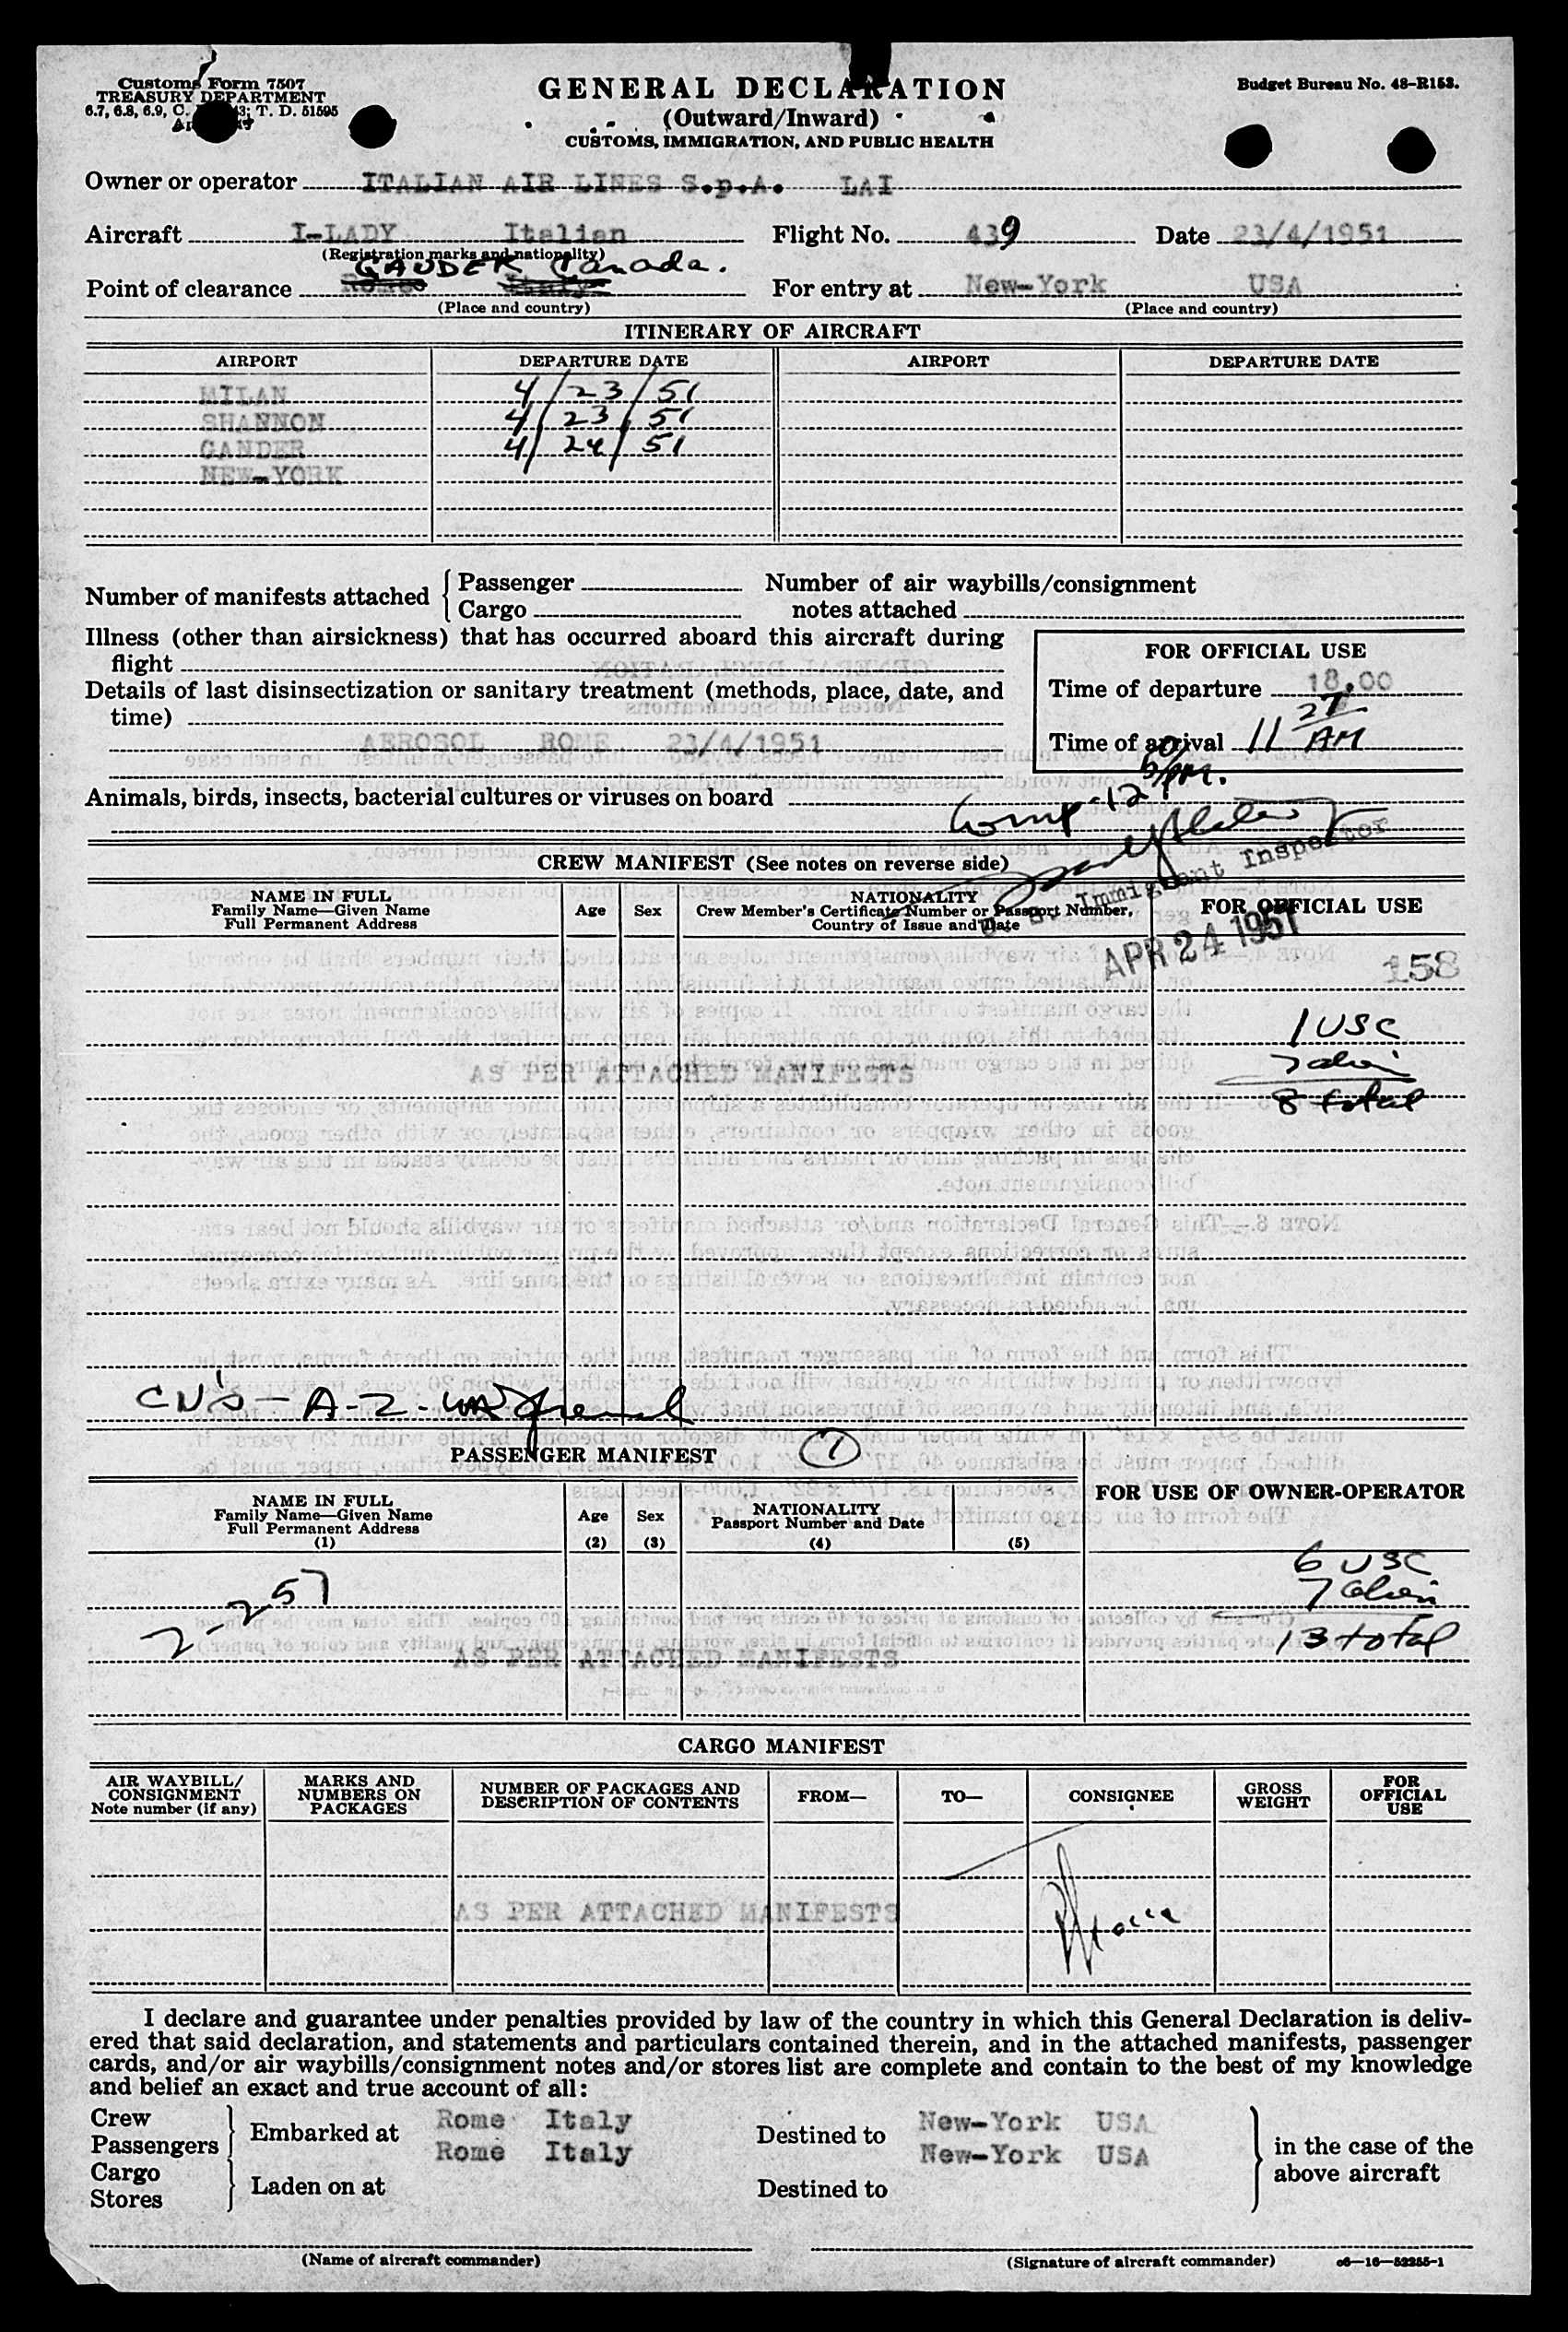 Customs Form 7507
TREASURY DEPARTMENT
6.7, 6.8, 6.9, C. T. D. 51595
GENERAL DECLARATION
(Outward/Inward)
CUSTOMS, IMMIGRATION, AND PUBLIC HEALTH
Budget Bureau No. 48-R153.
Owner or operator ITALIAN AIR LINES S.p.A. LAI
Aircraft I-LADY Italian Flight No. 439 Date 23/4/1951
(Registration marks and nationality)
GAUDER Canada.
Point of clearance Rome Italy For entry at New-York USA
(Place and country) (Place and country)
ITINERARY OF AIRCRAFT
AIRPORT DEPARTURE DATE AIRPORT DEPARTURE DATE
MILAN 4/23/51
SHANNON 4/23/51
GANDER 4/24/51
NEW-YORK
Number of manifests attached { Passenger Number of air waybills/consignment
Cargo notes attached
Illness (other than airsickness) that has occurred aboard this aircraft during
flight
FOR OFFICIAL USE
Details of last disinsectization or sanitary treatment (methods, place, date, and
time)
Time of departure 18.00
AEROSOL ROME 23/4/1951
Time of arrival 11 27 AM
Animals, birds, insects, bacterial cultures or viruses on board
Comp-12 PM.
U. S. Immigrant Inspector
CREW MANIFEST (See notes on reverse side)
NAME IN FULL
Family Name—Given Name
Full Permanent Address
Age Sex
NATIONALITY
Crew Member's Certificate Number or Passport Number,
Country of Issue and Date
FOR OFFICIAL USE
APR 24 1951
158
1 USC
7 alien
8 total
AS PER ATTACHED MANIFESTS
CN'S - A-2 -
PASSENGER MANIFEST 1
NAME IN FULL
Family Name—Given Name
Full Permanent Address
(1)
Age
(2)
Sex
(3)
NATIONALITY
Passport Number and Date
(4) (5)
FOR USE OF OWNER-OPERATOR
6 USC
7 alien
13 total
2-257
AS PER ATTACHED MANIFESTS
CARGO MANIFEST
AIR WAYBILL/
CONSIGNMENT
Note number (if any)
MARKS AND
NUMBERS ON
PACKAGES
NUMBER OF PACKAGES AND
DESCRIPTION OF CONTENTS
FROM— TO— CONSIGNEE
GROSS
WEIGHT
FOR
OFFICIAL
USE
AS PER ATTACHED MANIFESTS
I declare and guarantee under penalties provided by law of the country in which this General Declaration is deliv-
ered that said declaration, and statements and particulars contained therein, and in the attached manifests, passenger
cards, and/or air waybills/consignment notes and/or stores list are complete and contain to the best of my knowledge
and belief an exact and true account of all:
Crew
Passengers } Embarked at Rome Italy Destined to New-York USA
Rome Italy New-York USA
Cargo
Stores } Laden on at Destined to
in the case of the
above aircraft
(Name of aircraft commander) (Signature of aircraft commander) c6—16—52255-1